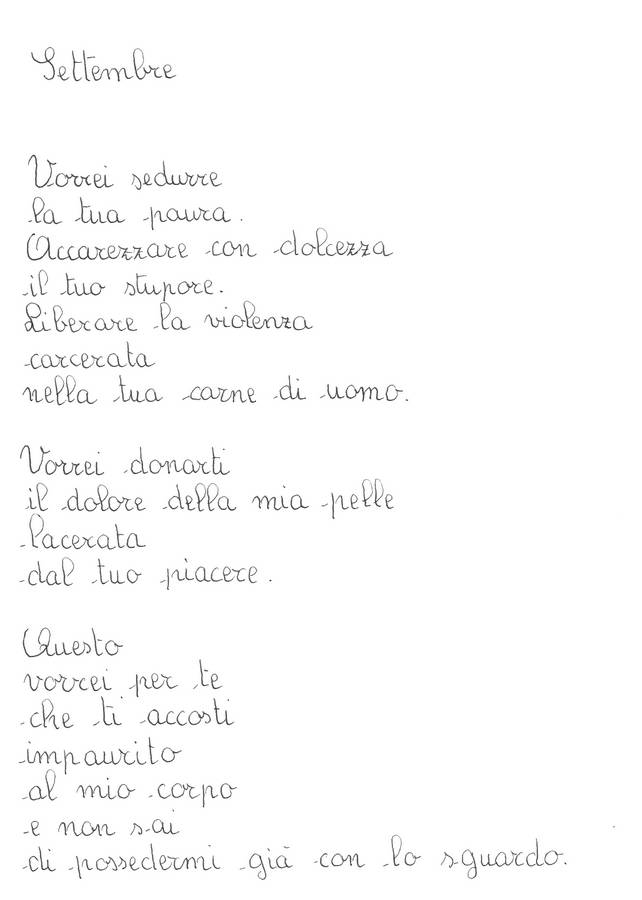 Settembre
Vorrei sedurre
la tua paura.
Accarezzare con dolcezza
il tuo stupore.
Liberare la violenza
carcerata
nella tua carne di uomo.
Vorrei donarti
il dolore della mia pelle
lacerata
dal tuo piacere.
Questo
vorrei per te
che ti accosti
impaurito
al mio corpo
e non sai
di possedermi già con lo sguardo.